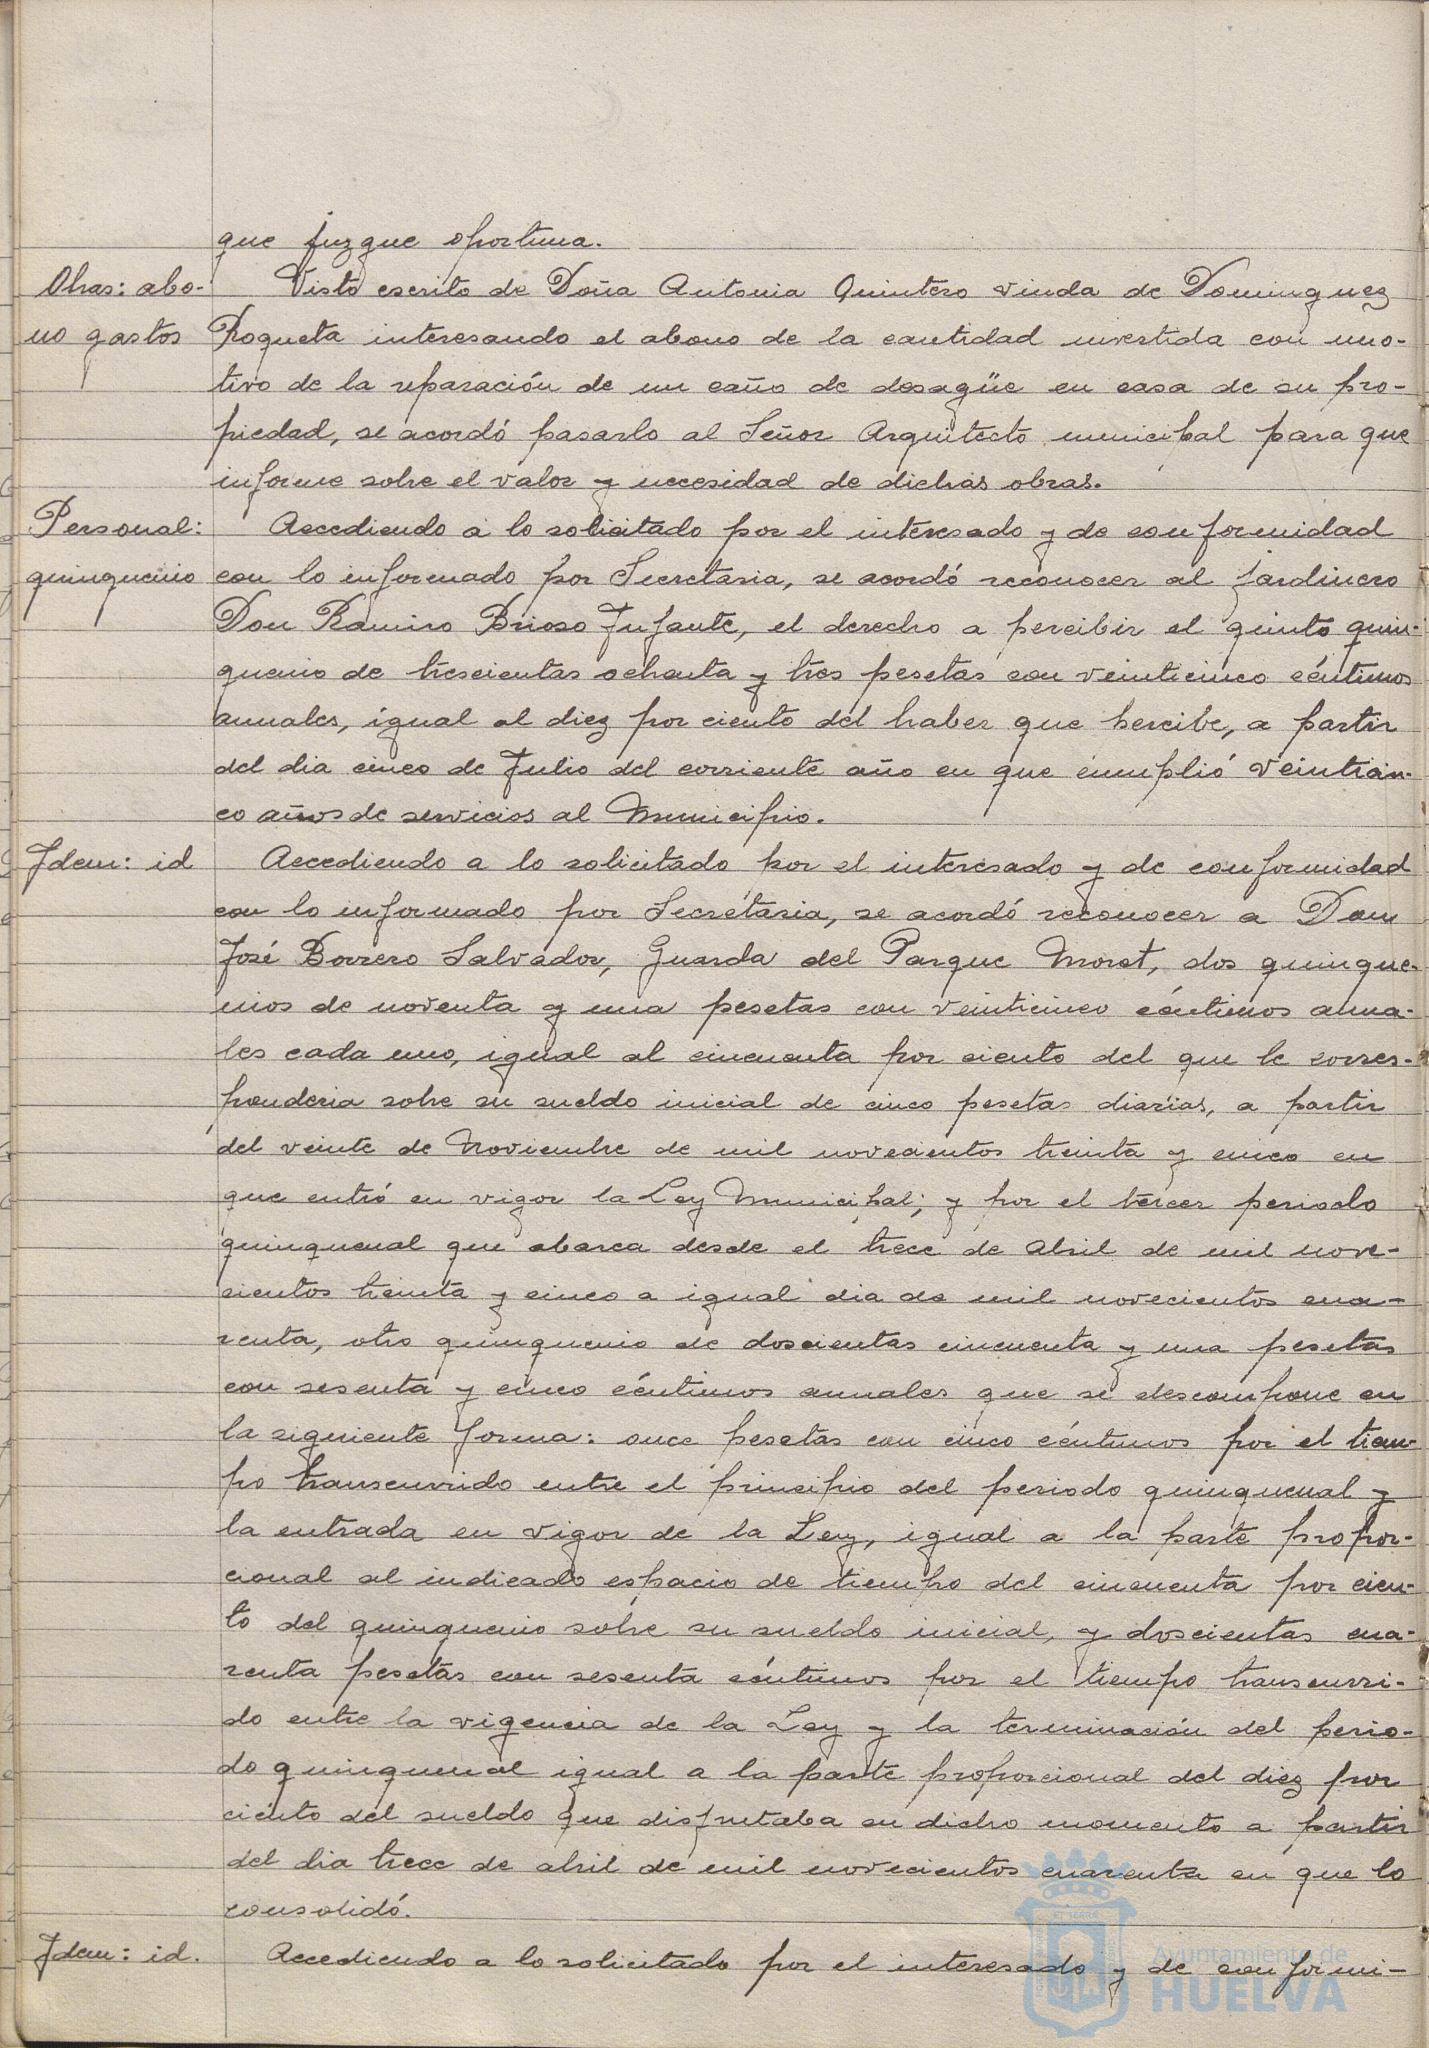 que juzgue oportuna.
Obras: abo-
no gastos
Visto escrito de Doña Antonia Quintero viuda de Dominguez
Roqueta interesando el abono de la cantidad invertida con mo-
tivo de la reparación de un caño de desagüe en casa de su pro-
piedad, se acordó pasarlo al Señor Arquitecto municipal para que
informe sobre el valor y necesidad de dichas obras.
Personal:
quinquenio
Accediendo a lo solicitado por el interesado y de conformidad
con lo informado por Secretaria, se acordó reconocer al jardinero
Don Ramiro Brioso Infante, el derecho a percibir el quinto quin-
quenio de trescientas ochenta y tres pesetas con veinticinco céntimos
anuales, igual al diez por ciento del haber que percibe, a partir
del dia cinco de Julio del corriente año en que cumplió veinticin-
co años de servicios al Municipio.
Idem: id
Accediendo a lo solicitado por el interesado y de conformidad
con lo informado por Secretaria, se acordó reconocer a Don
José Borrero Salvador, Guarda del Parque Moret, dos quinque-
nios de noventa y una pesetas con veinticinco céntimos anua-
les cada uno, igual al cincuenta por ciento del que le corres-
ponderia sobre su sueldo inicial de cinco pesetas diarias, a partir
del veinte de Noviembre de mil novecientos treinta y cinco en
que entró en vigor la Ley Municipal; y por el tercer periodo
quinquenal que abarca desde el trece de Abril de mil nove-
cientos treinta y cinco a igual dia de mil novecientos cua-
renta, otro quinquenio de doscientas cincuenta y una pesetas
con sesenta y cinco céntimos anuales que se descompone en
la siguiente forma: once pesetas con cinco céntimos por el tiem-
po transcurrido entre el principio del periodo quinquenal y
la entrada en vigor de la Ley, igual a la parte propor-
cional al indicado espacio de tiempo del cincuenta por cien-
to del quinquenio sobre su sueldo inicial, y doscientas cua-
renta pesetas con sesenta céntimos por el tiempo transcurri-
do entre la vigencia de la Ley y la terminación del perio-
do quinquenal igual a la parte proporcional del diez por
ciento del sueldo que disfrutaba en dicho momento a partir
del dia trece de abril de mil novecientos cuarenta en que lo
consolidó.
Idem: id.
Accediendo a lo solicitado por el interesado y de conformi-
Ayuntamiento de
HUELVA